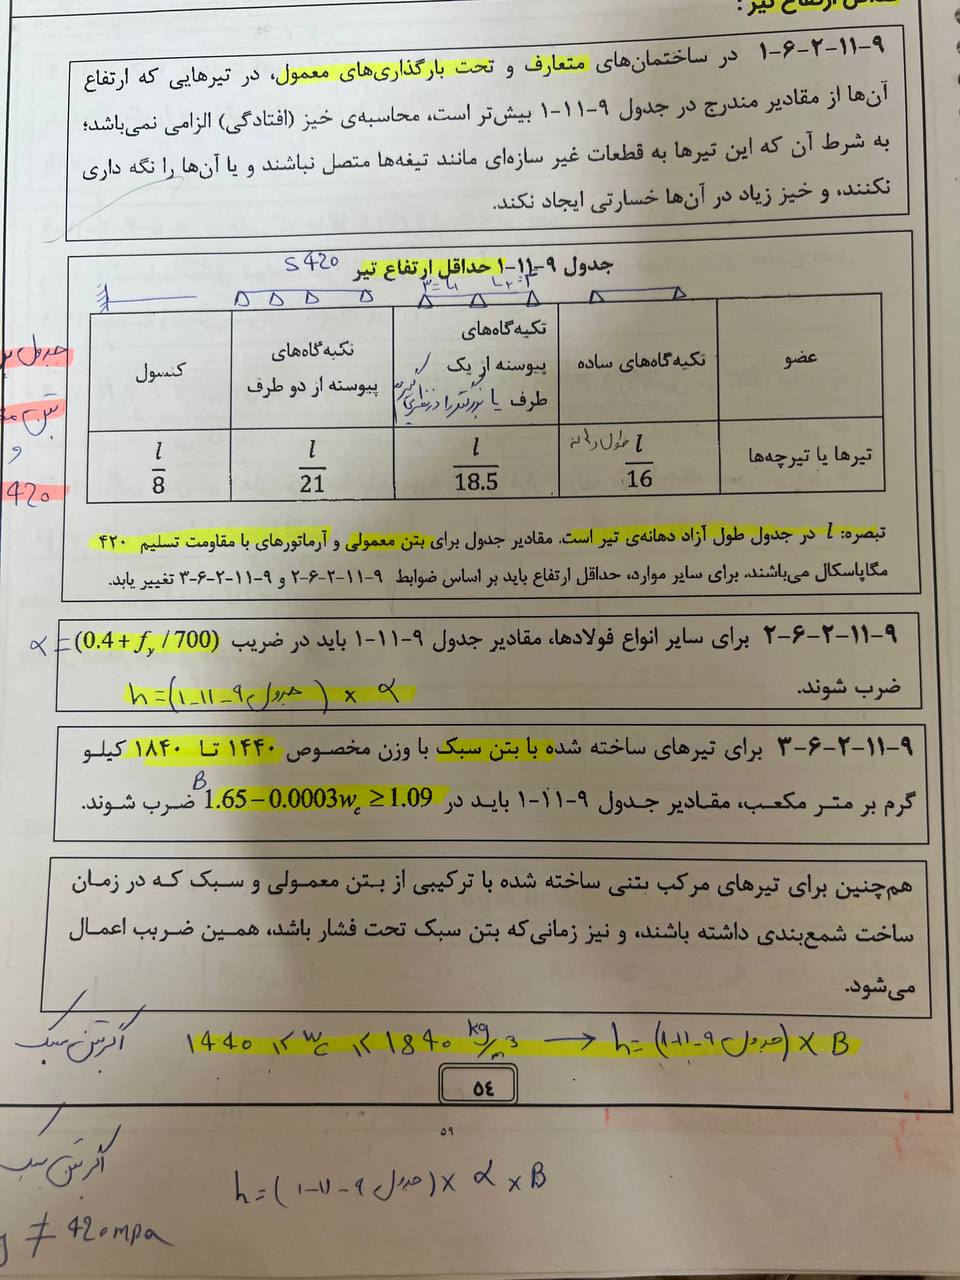 حداقل ارتفاع تیر :
۹-۱۱-۲-۶-۱ در ساختمان‌های متعارف و تحت بارگذاری‌های معمول، در تیرهایی که ارتفاع
آن‌ها از مقادیر مندرج در جدول ۹-۱۱-۱ بیش‌تر است، محاسبه‌ی خیز (افتادگی) الزامی نمی‌باشد؛
به شرط آن که این تیرها به قطعات غیر سازه‌ای مانند تیغه‌ها متصل نباشند و یا آن‌ها را نگه داری
نکنند، و خیز زیاد در آن‌ها خسارتی ایجاد نکند.
جدول ۹-۱۱-۱ حداقل ارتفاع تیر S420
عضو
تکیه‌گاه‌های ساده
تکیه‌گاه‌های
پیوسته از یک
طرف
تکیه‌گاه‌های
پیوسته از دو طرف
کنسول
تیرها یا تیرچه‌ها
l/16 طول دهانه
l/18.5
l/21
l/8
تبصره: l در جدول طول آزاد دهانه‌ی تیر است. مقادیر جدول برای بتن معمولی و آرماتورهای با مقاومت تسلیم ۴۲۰
مگاپاسکال می‌باشند. برای سایر موارد، حداقل ارتفاع باید بر اساس ضوابط ۹-۱۱-۲-۶-۲ و ۹-۱۱-۲-۶-۳ تغییر یابد.
جدول
بتن
و
420
۹-۱۱-۲-۶-۲ برای سایر انواع فولادها، مقادیر جدول ۹-۱۱-۱ باید در ضریب (0.4 + fy / 700) = α
ضرب شوند.
h = (جدول ۹-۱۱-۱) × α
۹-۱۱-۲-۶-۳ برای تیرهای ساخته شده با بتن سبک با وزن مخصوص ۱۴۴۰ تا ۱۸۴۰ کیلو
گرم بر متر مکعب، مقادیر جدول ۹-۱۱-۱ باید در 1.65 − 0.0003wc ≥ 1.09 ضرب شوند.
B
هم‌چنین برای تیرهای مرکب بتنی ساخته شده با ترکیبی از بتن معمولی و سبک که در زمان
ساخت شمع‌بندی داشته باشند، و نیز زمانی‌که بتن سبک تحت فشار باشد، همین ضریب اعمال
می‌شود.
اگر بتن سبک 1440 ≤ wc ≤ 1840 kg/m3 → h = (جدول ۹-۱۱-۱) × B
٥٤
٥٩
اگر بتن سبک
h = (جدول ۹-۱۱-۱) × α × B
≠ 420 mpa